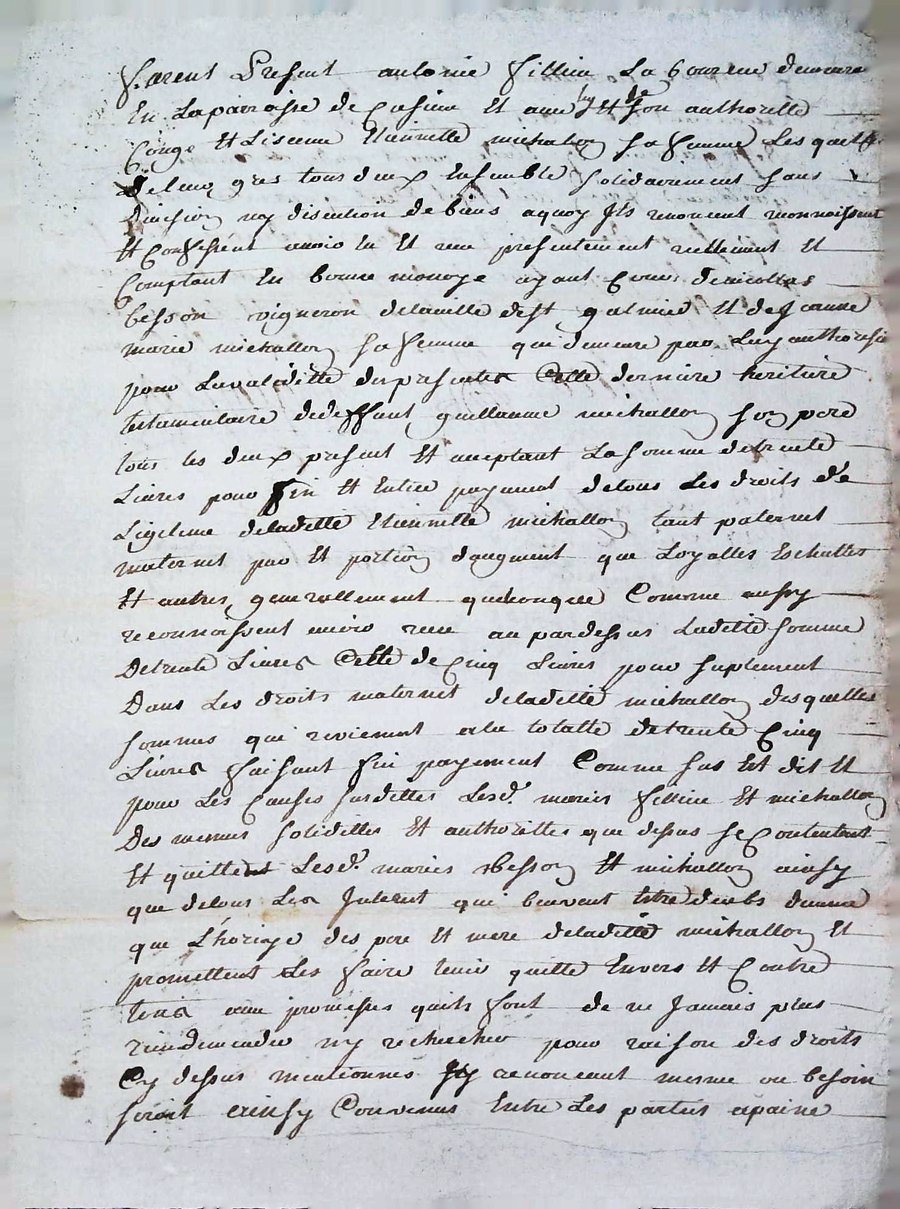 furent present antoine fillion laboureur demeurant
En Laparroisse de Cusieu Et avec luy Et de son authoritté
Congé Et Lisence Etiennette michallon sa femme Lesquels
de leur grés tous deux Ensemble solidairement sans
division ny discution de biens aquoy Ils renoncent reconnoissent
Et Confessent avoir Eu Et receu presentement reellement Et
Comptant En bonne monoye ayant Cours de nicollas
besson vigneron delaville de st galmier Et de Jeanne
marie michallon sa femme qui demeure par Luy authorisée
pour Lavaliditté des presentes Celle derniere heritiere
testamentaire dedeffunt guillaume michallon son pere
tous les deux present Et acceptant La somme detrente
Livres pour fin Et Entier payement detous Les droits de
Legitime deladitte Etiennette michallon tant paternel
maternel par Et portion daugment que Loyalles Eschuttes
Et autres generallement quelconques Comme aussy
reconnoissent avoir receu au pardessus Laditte somme
Detrente Livres Celle de Cinq Livres pour suplement
Dans Les droits maternel deladitte michallon desquelles
sommes qui reviennent ala totalle detrente Cinq
Livres faisant fin payement Comme sus Est dit Et
pour Les Causes susdittes Lesd. mariés fillion Et michallon
Des mesmes solidittés Et authorittés que dessus se Contentent
Et quittent Lesd. mariés Besson Et michallon ainsy
que detous Les Interest qui peuvent Etre deubs
que L'hoirye des pere Et mere deladitte michallon Et
promettent Les faire tenir quitte Envers Et Contre
tous avec promesses quils font de ne Jamais plus
rien demander ny rechercher pour raison des droits
Cy dessus mentionnés y renoncant mesme ou besoin
seroit ainsy Convenus Entre Les parties apeine